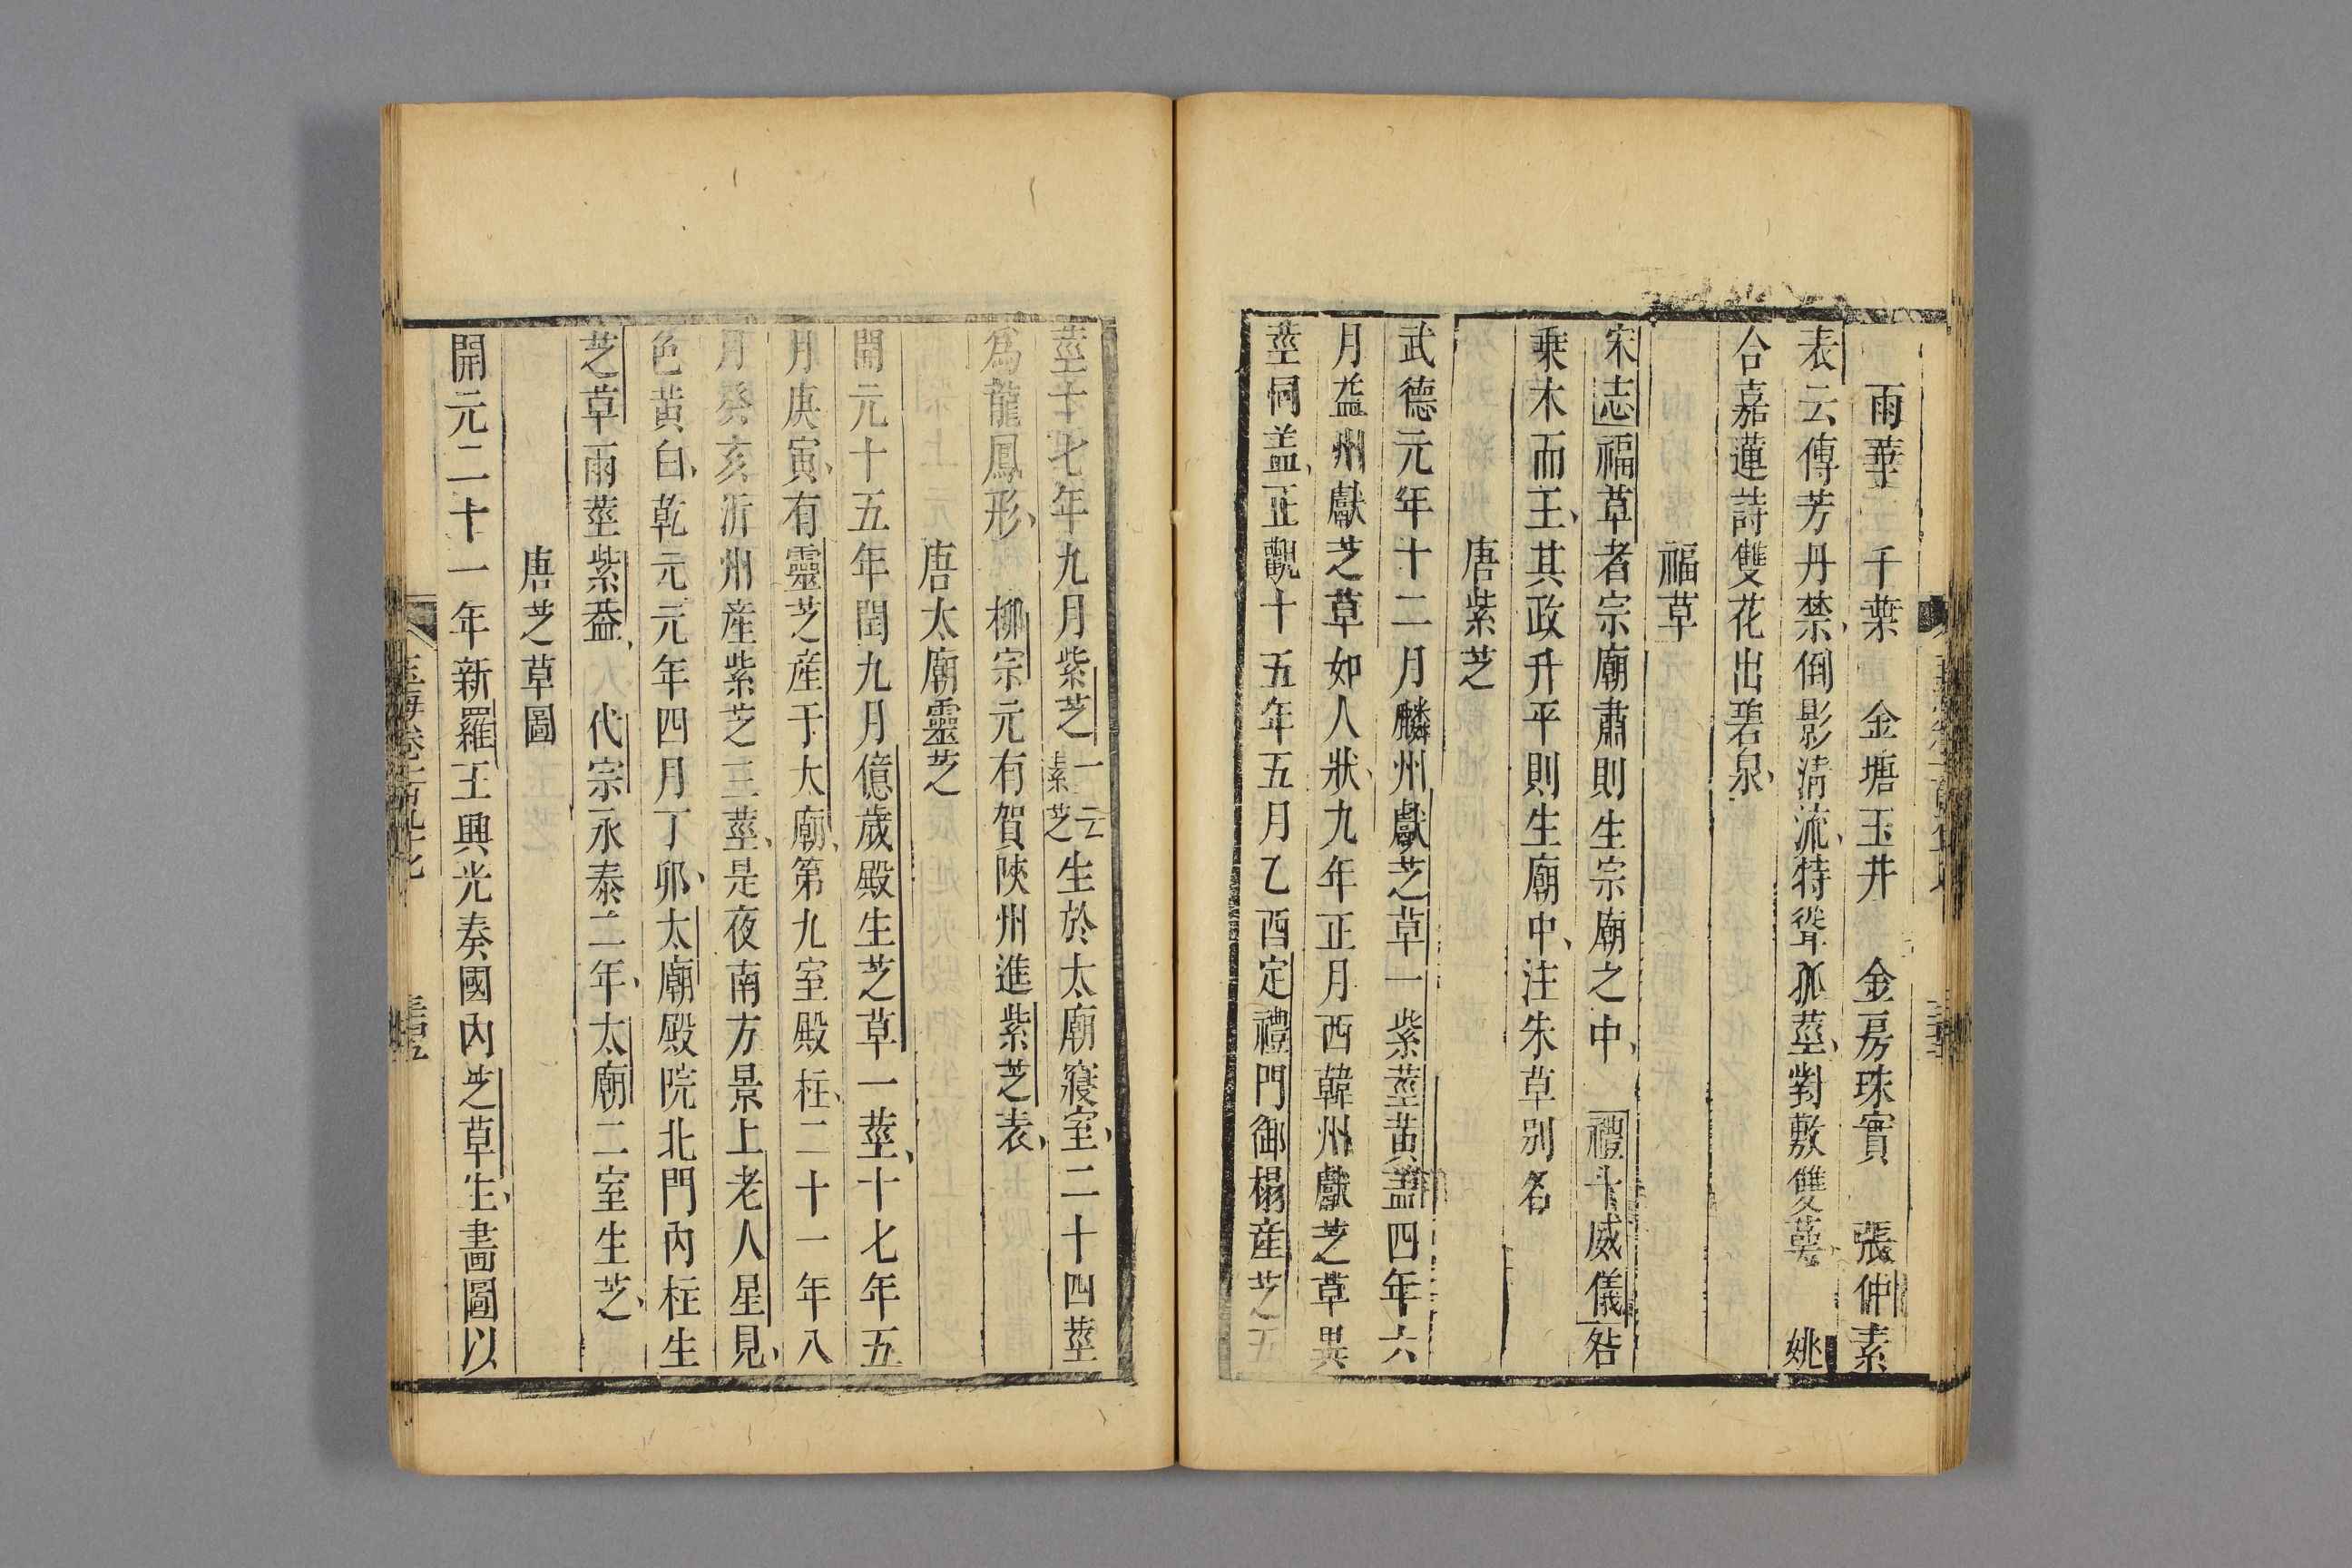 雨華 千葉 金塘玉井 金房珠實 張仲素
表云傳芳丹禁倒影清流特聳孤莖對敷雙萼 姚
合嘉蓮詩雙花出碧泉
福草
宋志福草者宗廟肅則生宗廟之中 禮斗威儀君
乗木而王其政升平則生廟中注朱草别名
唐紫芝
武德元年十二月麟州獻芝草一紫莖黄蓋四年六
月益州獻芝草如人狀九年正月西韓州獻芝草異
莖同盖正觀十五年五月乙酉定禮門御榻産芝五
莖十七年九月紫芝一云素芝生於太廟寢室二十四莖
爲龍鳳形 柳宗元有賀陜州進紫芝表
唐太廟靈芝
開元十五年閏九月億歲殿生芝草一莖十七年五
月庚寅有靈芝産于太廟第九室殿柱二十一年八
月癸亥沂州産紫芝三莖是夜南方景上老人星見
色黄白乾元元年四月丁卯太廟殿院北門内柱生
芝草兩莖紫葢 代宗永泰二年太廟二室生芝
唐芝草圖
開元二十一年新羅王興光奏國内芝草生畫圖以